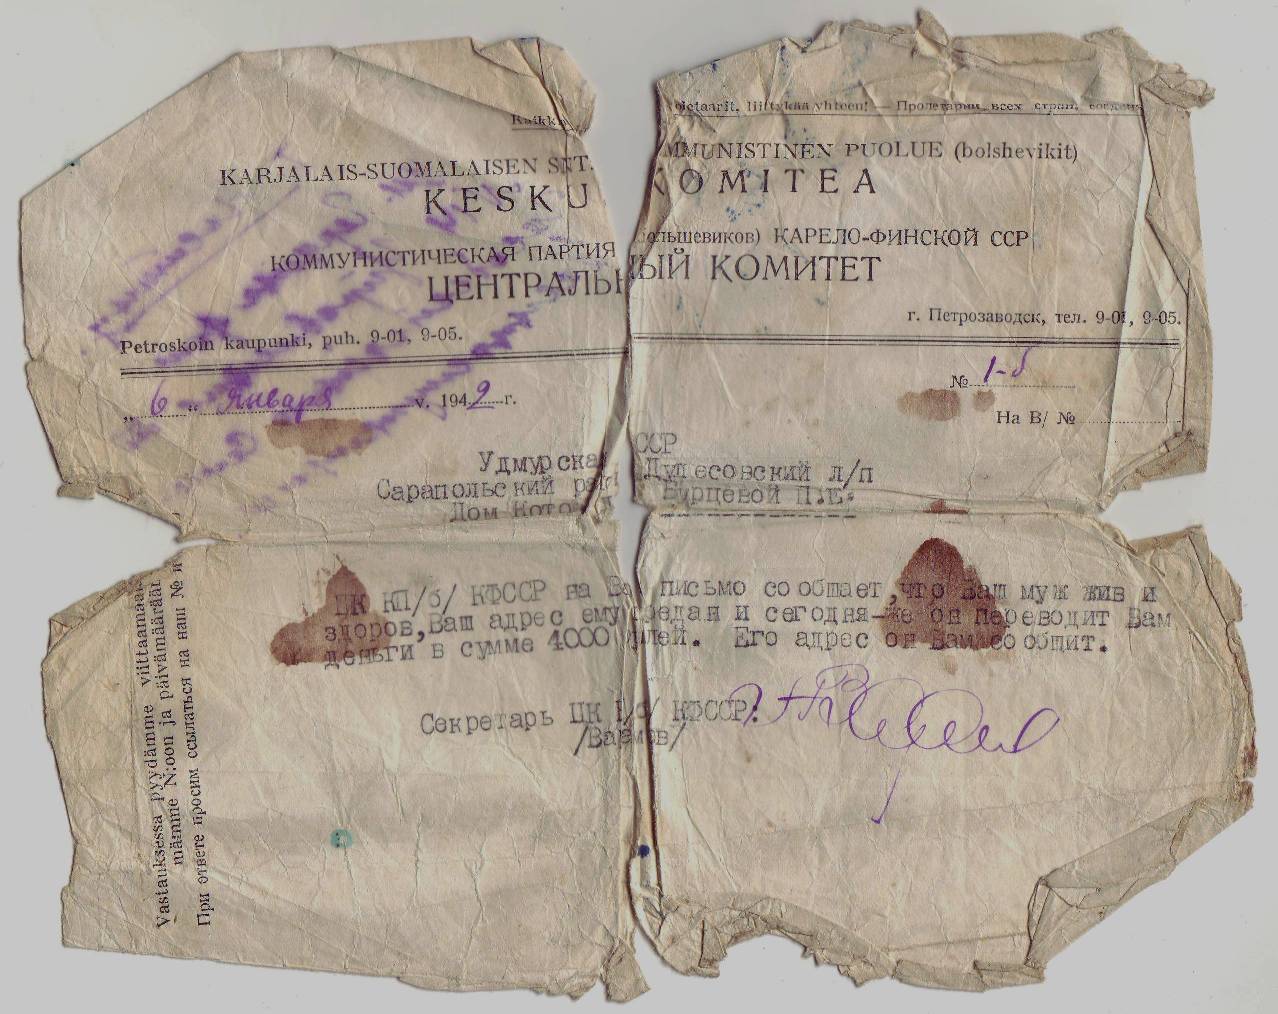 Kaikk oletaarit, liittykää yhteen! — Пролетарии всех стран, соедин
KARJALAIS-SUOMALAISEN SNT. MMUNISTINEN PUOLUE (bolshevikit)
KESKU KOMITEA
КОММУНИСТИЧЕСКАЯ ПАРТИЯ ольшевиков) КАРЕЛО-ФИНСКОЙ ССР
ЦЕНТРАЛЬНЫЙ КОМИТЕТ
Petroskoin kaupunki, puh. 9-01, 9-05.
г. Петрозаводск, тел. 9-01, 9-05.
„ 6 “ Января v. 1942 г.
№ 1-5
На В/ №
Удмурская ССР
Сарапольский рай Дулесовский л/п
Дом Кото Бурцевой П.Е.
ЦК КП/б/ КФССР на Ва письмо сообщает, что Ваш муж жив и
здоров, Ваш адрес ему редан и сегодня-же он переводит Вам
деньги в сумме 4000 лей. Его адрес он Вам сообщит.
Секретарь ЦК /б/ КФССР:
/Варламов/
Vastauksessa pyydämme viittaamaan
mämme N:oon ja päivämäärään
При ответе просим ссылаться на наш № и